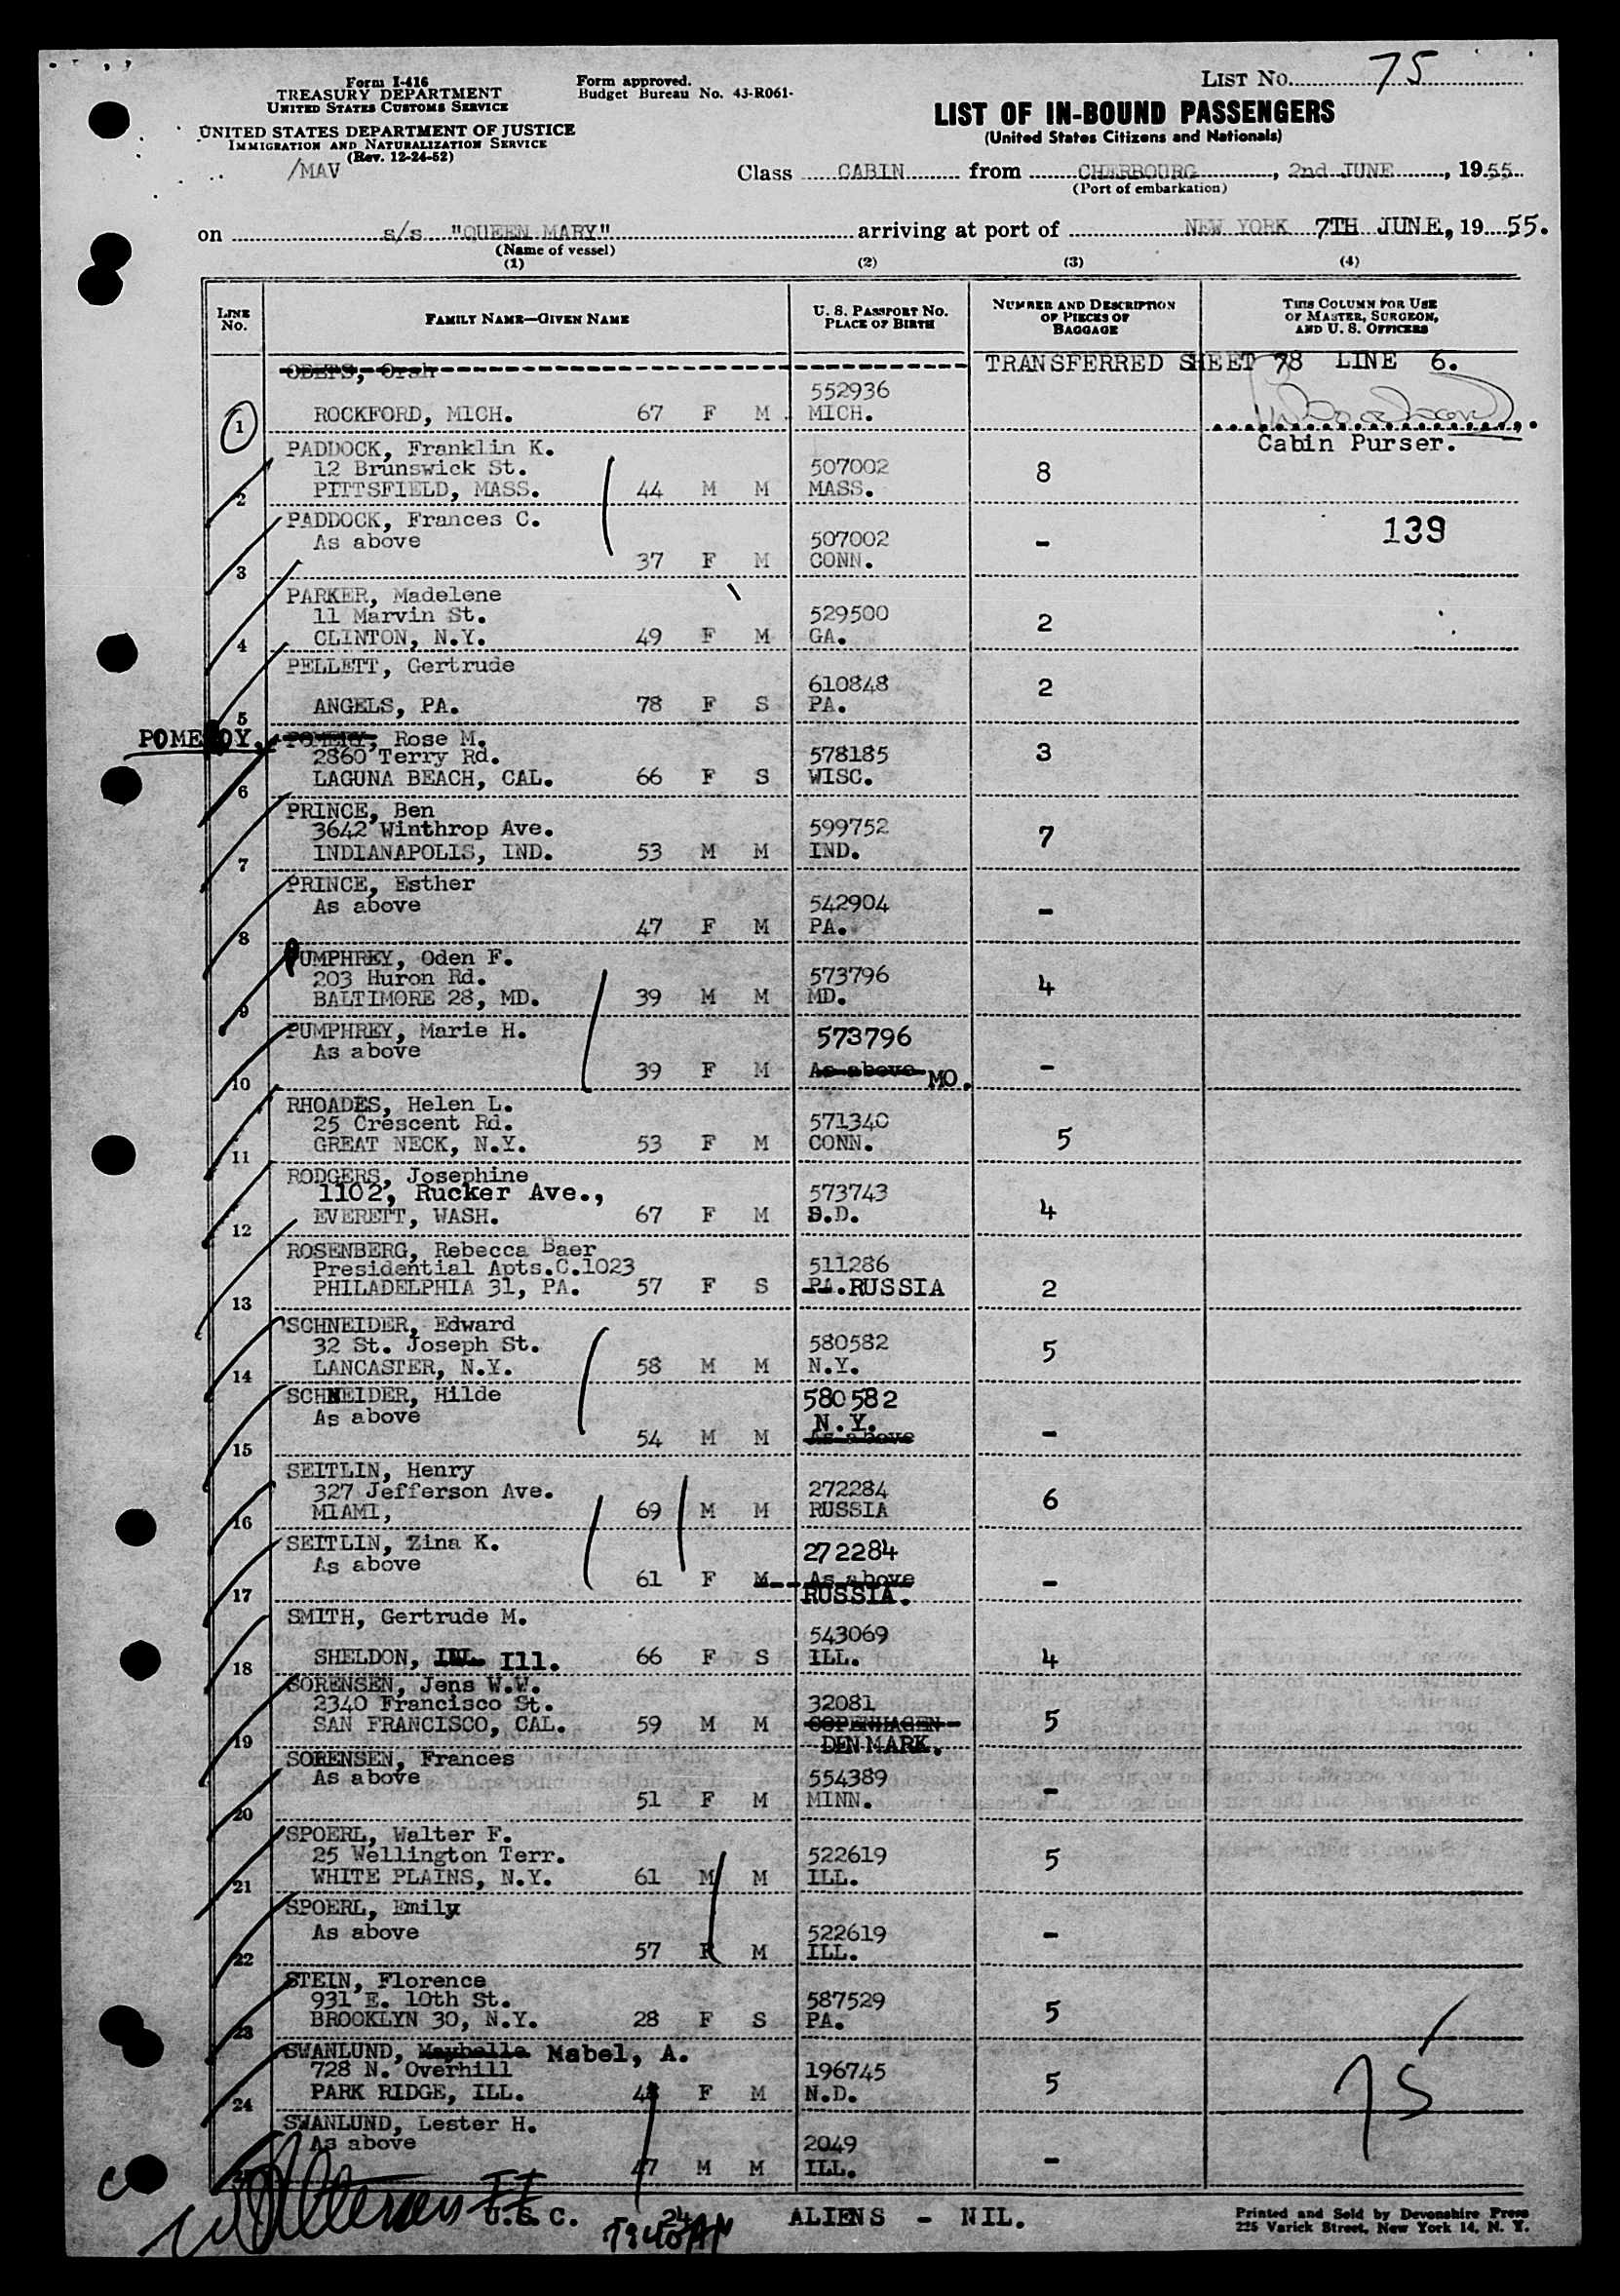 Form I-416
TREASURY DEPARTMENT
UNITED STATES CUSTOMS SERVICE
UNITED STATES DEPARTMENT OF JUSTICE
IMMIGRATION AND NATURALIZATION SERVICE
(Rev. 12-24-52)
/MAV
Form approved.
Budget Bureau No. 43-R061-
LIST NO. 75
LIST OF IN-BOUND PASSENGERS
(United States Citizens and Nationals)
Class CABIN from CHERBOURG, 2nd JUNE, 1955
(Port of embarkation)
on s/s "QUEEN MARY" arriving at port of NEW YORK 7TH JUNE, 1955.
(Name of vessel)
(1) (2) (3) (4)
LINE No. FAMILY NAME—GIVEN NAME U. S. PASSPORT NO. PLACE OF BIRTH NUMBER AND DESCRIPTION OF PIECES OF BAGGAGE THIS COLUMN FOR USE OF MASTER, SURGEON, AND U. S. OFFICERS
Orah TRANSFERRED SHEET 78 LINE 6.
552936
1 ROCKFORD, MICH. 67 F M MICH.
Cabin Purser.
PADDOCK, Franklin K.
12 Brunswick St. 507002 8
2 PITTSFIELD, MASS. 44 M M MASS.
PADDOCK, Frances C. 139
As above 507002 -
3 37 F M CONN.
PARKER, Madelene
11 Marvin St. 529500 2
4 CLINTON, N.Y. 49 F M GA.
PELLETT, Gertrude
610848 2
5 ANGELS, PA. 78 F S PA.
POMEROY, POMERY, Rose M.
2860 Terry Rd. 578185 3
6 LAGUNA BEACH, CAL. 66 F S WISC.
PRINCE, Ben
3642 Winthrop Ave. 599752 7
7 INDIANAPOLIS, IND. 53 M M IND.
PRINCE, Esther
As above 542904 -
8 47 F M PA.
PUMPHREY, Oden F.
203 Huron Rd. 573796 4
9 BALTIMORE 28, MD. 39 M M MD.
PUMPHREY, Marie H. 573796
As above
10 39 F M As above MO. -
RHOADES, Helen L.
25 Crescent Rd. 571340 5
11 GREAT NECK, N.Y. 53 F M CONN.
RODGERS, Josephine
1102, Rucker Ave., 573743 4
12 EVERETT, WASH. 67 F M S.D.
ROSENBERG, Rebecca Baer
Presidential Apts.C.1023 511286
13 PHILADELPHIA 31, PA. 57 F S PA. RUSSIA 2
SCHNEIDER, Edward
32 St. Joseph St. 580582 5
14 LANCASTER, N.Y. 58 M M N.Y.
SCHNEIDER, Hilde 580582
As above N.Y.
15 54 M M As above -
SEITLIN, Henry
327 Jefferson Ave. 272284 6
16 MIAMI, 69 M M RUSSIA
SEITLIN, Zina K. 272284
As above
17 61 F M As above -
RUSSIA.
SMITH, Gertrude M.
543069
18 SHELDON, Ill. 66 F S ILL. 4
SORENSEN, Jens W.W.
2340 Francisco St. 32081
19 SAN FRANCISCO, CAL. 59 M M COPENHAGEN 5
DENMARK.
SORENSEN, Frances
As above 554389 -
20 51 F M MINN.
SPOERL, Walter F.
25 Wellington Terr. 522619 5
21 WHITE PLAINS, N.Y. 61 M M ILL.
SPOERL, Emily
As above 522619 -
22 57 F M ILL.
STEIN, Florence
931 E. 10th St. 587529 5
23 BROOKLYN 30, N.Y. 28 F S PA.
SWANLUND, Maybelle Mabel, A.
728 N. Overhill 196745 5
24 PARK RIDGE, ILL. 48 F M N.D.
75
SWANLUND, Lester H.
As above 2049 -
47 M M ILL.
U.S.C. 24 ALIENS - NIL.
Printed and Sold by Devonshire Press
225 Varick Street, New York 14, N. Y.